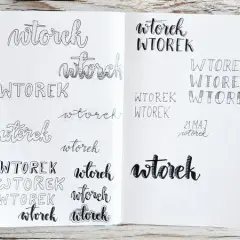 wtorek
WTOREK
wtorek
WTOREK
wtorek
wtorek
wtorek
WTOREK
WTOREK
WTOREK
wtorek
wtorek
wtorek
wtorek
wtorek
WTOREK
WTOREK
WTOREK
WTOREK
WTOREK
WTOREK
21 MAJ
wtorek
wtorek